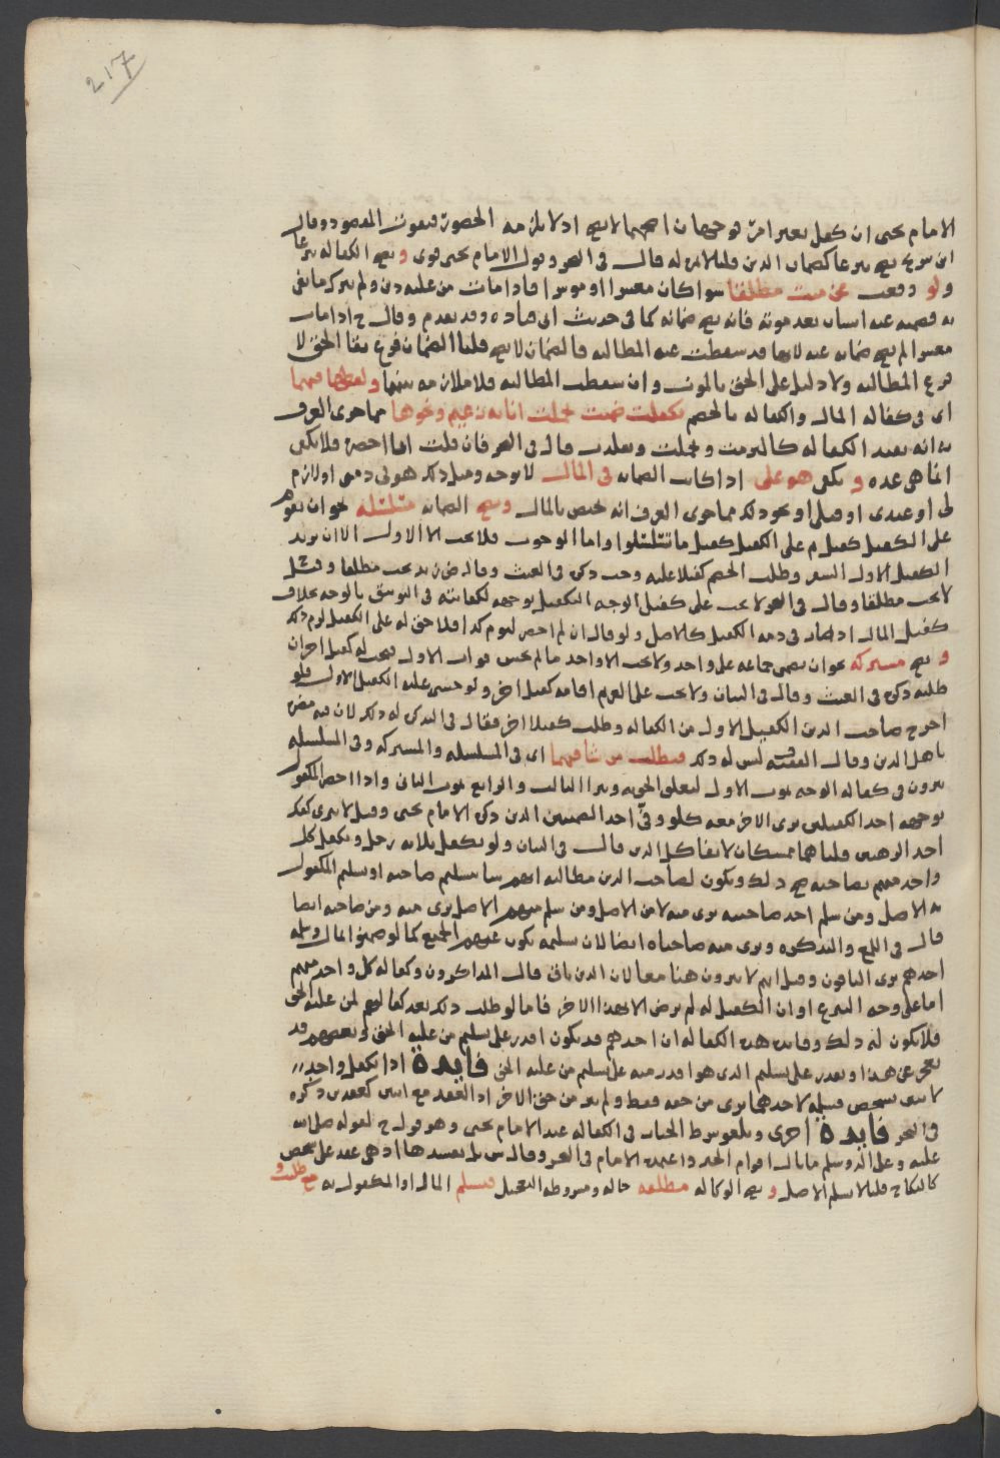 217
الامام يحيى ان كفل بغير امره فوجهان اصحهما لا يصح اذ لا يلزمه الحضور فيفوت المقصود وقال
ابن سريج يصح تبرعا كضمان الدين قلنا لا يدله قال في البحر وقول الامام يحيى قوي و يصح الكفاله تبرعا
ولو وقعت عن ميت مطلقا سوا كان معسرا او موسرا فاذا مات من عليه دين ولم يترك ما يفى
به فضمنه عنه انسان بعد موته فانه يصح ضمانه كما في حديث ابي قتاده وقد تقدم وقال ح اذا مات
معسرا لم يصح ضمانه عنه لانها قد سقطت عنه المطالبه فالضمان لا يصح قلنا الضمان فرع بقا الحق لا
فرع المطالبه ولا دليل على الحق بالموت وان سقطت المطالبه فلا ملازمه بينهما ولفظها فيهما
اى في كفاله المال والكفاله بالخصم تكفلت ضمنت تحملت انا به زعيم ونحوها مما جرى العرف
به انه يفيد الكفاله كالتزمت وتحملت وتقلدت قال في البحر فان قلت انما احضره فلا يكفي
انما هي عده و يكفي هو على اذا كانت الضمانه في المال لا بوجه ومثل ذلك هو في ذمتي او لازم
لي او عندي او قبلي او نحو ذلك مما جرى العرف انه يختص بالمال وتصح الضمانه متسلسله نحو ان يقوم
على الكفيل كفيل ثم على الكفيل كفيل ما تسلسلوا واما الوجوب فلا يجب الا الاول الا ان يريد
الكفيل الاول السفر وطلب الخصم كفيلا عليه وجب ذكره في الغيث وقال ض زيد يجب مطلقا وقيل
لا يجب مطلقا وقال في البحر لا يجب على كفيل الوجه التكفيل بوجهه لكفايته في التوثيق بالوجه بخلاف
كفيل المال اذ صار في ذمه الكفيل كالاصل ولو قال ان لم احضره ليوم كذا فلا حق له على الكفيل لزم ذلك
و يصح مشتركه نحو ان يضمن جماعه على واحد ولا يجب الا واحد ما لم يخش فوات الاول فيجب له كفيل اخر ان
طلبه ذكره في الغيث وقال في البيان ولا يجب على الغريم اقامه كفيل اخر ولو خشي عليه الكفيل الاول فلو
اخرج صاحب الدين الكفيل الاول من الكفاله وطلب كفيلا اخر فقال في التذكره له ذلك لان فيه مضره
باهل الدين وقال الفقيه ف ليس له ذلك فيطلب من شا فيهما اى في المسلسله والمشتركه وفي المسلسله
يبرون في كفاله الوجه بموت الاول لتعلق الحق به ويبرا الثالث والرابع بموت الثاني واذا احضر المكفول
بوجهه احد الكفيلين بري الاخر معه كما لو وفى احد الضمينين الدين ذكره الامام يحيى وقيل لا يبرى كفك
احد الرهنين قلنا هما ممسكان لا بقا كل الدين قال في البيان ولو تكفل ثلاثه برجل وتكفل كل
واحد منهم بصاحبه صح ذلك ويكون لصاحب الدين مطالبه ايهم شا بتسليم صاحبه او تسليم المكفول
به الاصل ومن سلم احد صاحبيه بري منه لا من الاصل ومن سلم منهم الاصل بري منه ومن صاحبه ايضا
قال في اللمع والتذكره وبري منه صاحباه ايضا لان تسليمه يكون عنهم الجميع كما لو ضمنوا المال وسلمه
احدهم بري الباقون وقيل انهم لا يبرون هنا معا لان الدين باق قال المذاكرون وكفاله كل واحد منهم
اما على وجه التبرع او ان الكفيل له لم يرض الا بهذا الاخر فاما لو طلب ذلك بعد كفالتهم لمن عليه الحق
فلا يكون له ذلك وفايده هذه الكفاله ان احدهم قد يكون اقدر على تسليم من عليه الحق وبعضهم قد
يعجز عن هذا ويقدر على تسليم الذي هو اقدر منه على تسليم من عليه الحق فايدة اذا تكفل واحد
لاثنين بشخص فسلمه لاحدهما بري من حقه فقط ولم يبر من حق الاخر اذ العقد مع اثنين كعقدين ذكره
في البحر فايدة اخرى ويلغو شرط الخيار في الكفاله عند الامام يحيى وهو قول ح لقوله صلى الله
عليه وعلى اله وسلم ما بال اقوام الخبر واعتمده الامام في البحر وقال ش بل يفسدها اذ هي عقد على شخص
كالنكاح قلنا لا نسلم الاصل و يصح الوكاله مطلقه حاله ومشروطه التعجيل فيسلم المال او المكفول به متى طلب و